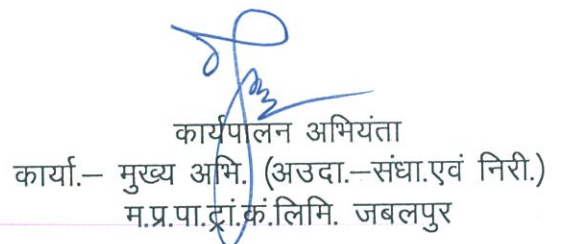 कार्यपालन अभियंता
कार्या.– मुख्य अभि. (अउदा.–संधा.एवं निरी.)
म.प्र.पा.ट्रां.कं.लिमि. जबलपुर